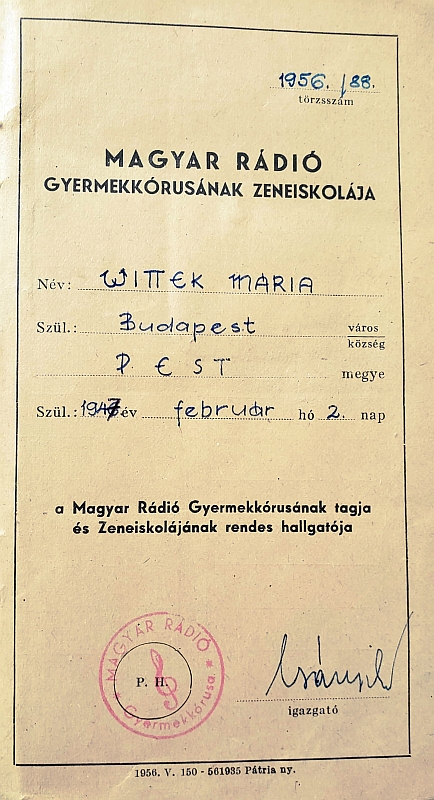 1956. /88.
törzsszám
MAGYAR RÁDIÓ
GYERMEKKÓRUSÁNAK ZENEISKOLÁJA
Név: WITTEK MARIA
Szül.: Budapest város
község
PEST megye
Szül.: 1947 év február hó 2. nap
a Magyar Rádió Gyermekkórusának tagja
és Zeneiskolájának rendes hallgatója
MAGYAR RÁDIÓ
P. H.
Gyermekkórusa
igazgató
1956. V. 150 - 561935 Pátria ny.